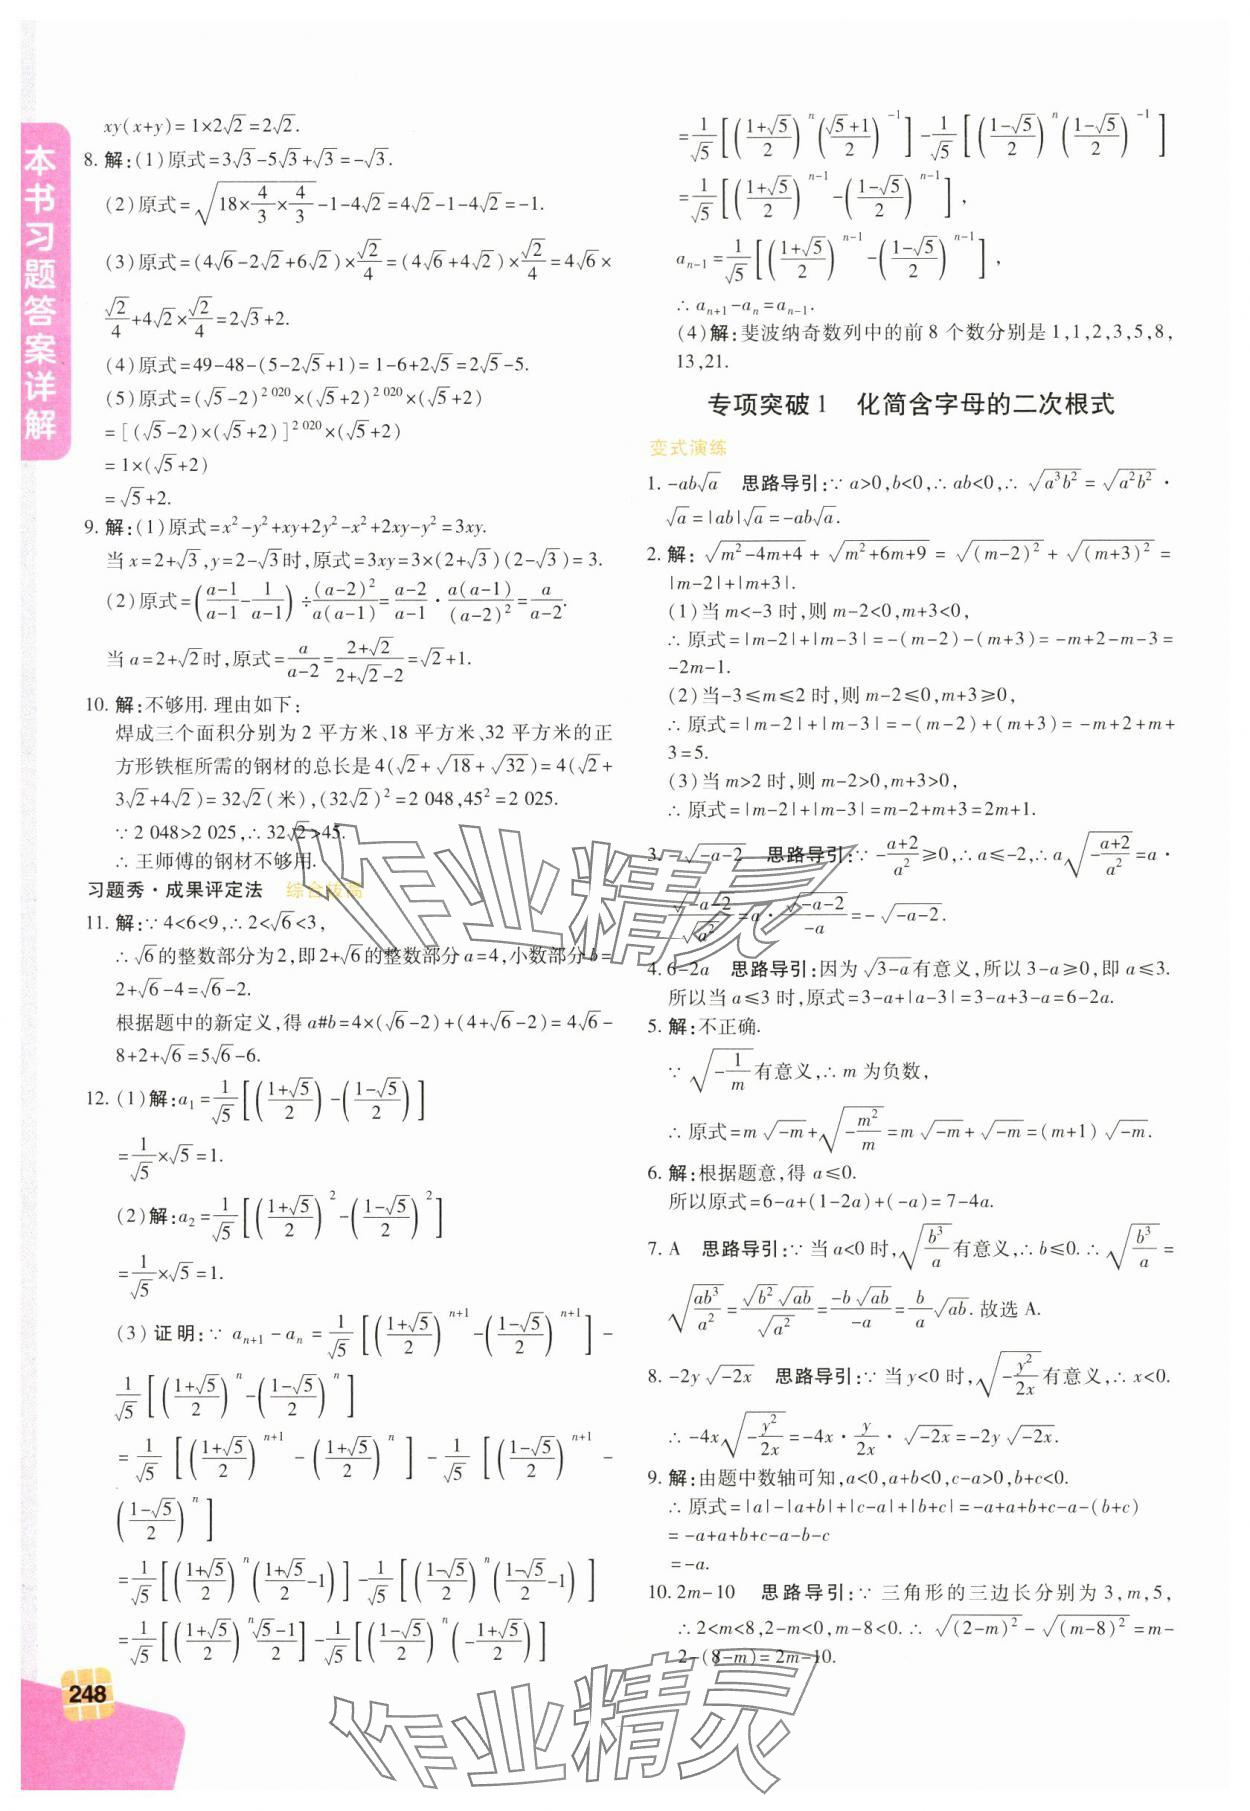 本书习题答案详解
xy(x+y)=1×2√2=2√2.
8. 解:(1)原式=3√3-5√3+√3=-√3.
(2)原式=√(18×4/3×4/3)-1-4√2=4√2-1-4√2=-1.
(3)原式=(4√6-2√2+6√2)×√2/4=(4√6+4√2)×√2/4=4√6×
√2/4+4√2×√2/4=2√3+2.
(4)原式=49-48-(5-2√5+1)=1-6+2√5=2√5-5.
(5)原式=(√5-2)^2 020×(√5+2)^2 020×(√5+2)
=[(√5-2)×(√5+2)]^2 020×(√5+2)
=1×(√5+2)
=√5+2.
9. 解:(1)原式=x²-y²+xy+2y²-x²+2xy-y²=3xy.
当x=2+√3,y=2-√3时,原式=3xy=3×(2+√3)(2-√3)=3.
(2)原式=((a-1)/(a-1)-1/(a-1))÷(a-2)²/(a(a-1))=(a-2)/(a-1)·a(a-1)/(a-2)²=a/(a-2).
当a=2+√2时,原式=a/(a-2)=(2+√2)/(2+√2-2)=√2+1.
10. 解:不够用. 理由如下:
焊成三个面积分别为 2 平方米、18 平方米、32 平方米的正
方形铁框所需的钢材的总长是4(√2+√18+√32)=4(√2+
3√2+4√2)=32√2(米),(32√2)²=2 048,45²=2 025.
∵2 048>2 025,∴32√2>45.
∴王师傅的钢材不够用.
习题秀·成果评定法 综合拔高
11. 解:∵4<6<9,∴2<√6<3,
∴√6的整数部分为2,即2+√6的整数部分a=4,小数部分b=
2+√6-4=√6-2.
根据题中的新定义,得a#b=4×(√6-2)+(4+√6-2)=4√6-
8+2+√6=5√6-6.
12. (1)解:a₁=1/√5[((1+√5)/2)-((1-√5)/2)]
=1/√5×√5=1.
(2)解:a₂=1/√5[((1+√5)/2)²-((1-√5)/2)²]
=1/√5×√5=1.
(3)证明:∵a_{n+1}-a_n=1/√5[((1+√5)/2)^{n+1}-((1-√5)/2)^{n+1}]-
1/√5[((1+√5)/2)^n-((1-√5)/2)^n]
=1/√5[((1+√5)/2)^{n+1}-((1+√5)/2)^n]-1/√5[((1-√5)/2)^{n+1}-
((1-√5)/2)^n]
=1/√5[((1+√5)/2)^n((1+√5)/2-1)]-1/√5[((1-√5)/2)^n((1-√5)/2-1)]
=1/√5[((1+√5)/2)^n (√5-1)/2]-1/√5[((1-√5)/2)^n(-(1+√5)/2)]
248
=1/√5[((1+√5)/2)^n((√5+1)/2)^{-1}]-1/√5[((1-√5)/2)^n((1-√5)/2)^{-1}]
=1/√5[((1+√5)/2)^{n-1}-((1-√5)/2)^{n-1}],
a_{n-1}=1/√5[((1+√5)/2)^{n-1}-((1-√5)/2)^{n-1}],
∴a_{n+1}-a_n=a_{n-1}.
(4)解:斐波纳奇数列中的前 8 个数分别是 1,1,2,3,5,8,
13,21.
专项突破1 化简含字母的二次根式
变式演练
1. -ab√a 思路导引:∵a>0,b<0,∴ab<0,∴√(a³b²)=√(a²b²)·
√a=|ab|√a=-ab√a.
2. 解:√(m²-4m+4)+√(m²+6m+9)=√((m-2)²)+√((m+3)²)=
|m-2|+|m+3|.
(1)当m<-3时,则m-2<0,m+3<0,
∴原式=|m-2|+|m-3|=-(m-2)-(m+3)=-m+2-m-3=
-2m-1.
(2)当-3≤m≤2时,则m-2≤0,m+3≥0,
∴原式=|m-2|+|m-3|=-(m-2)+(m+3)=-m+2+m+
3=5.
(3)当m>2时,则m-2>0,m+3>0,
∴原式=|m-2|+|m-3|=m-2+m+3=2m+1.
3. -√(-a-2) 思路导引:∵-(a+2)/a²≥0,∴a≤-2,∴a√(-(a+2)/a²)=a·
√(-a-2)/√(a²)=a·√(-a-2)/(-a)=-√(-a-2).
4. 6-2a 思路导引:因为√(3-a)有意义,所以3-a≥0,即a≤3.
所以当a≤3时,原式=3-a+|a-3|=3-a+3-a=6-2a.
5. 解:不正确.
∵√(-1/m)有意义,∴m为负数,
∴原式=m√(-m)+√(-m²/m)=m√(-m)+√(-m)=(m+1)√(-m).
6. 解:根据题意,得a≤0.
所以原式=6-a+(1-2a)+(-a)=7-4a.
7. A 思路导引:∵当a<0时,√(b³/a)有意义,∴b≤0.∴√(b³/a)=
√(ab³/a²)=√(b²)√(ab)/√(a²)=-b√(ab)/(-a)=b/a√(ab).故选A.
8. -2y√(-2x) 思路导引:∵当y<0时,√(-y²/2x)有意义,∴x<0.
∴-4x√(-y²/2x)=-4x·y/2x·√(-2x)=-2y√(-2x).
9. 解:由题中数轴可知,a<0,a+b<0,c-a>0,b+c<0.
∴原式=|a|-|a+b|+|c-a|+|b+c|=-a+a+b+c-a-(b+c)
=-a+a+b+c-a-b-c
=-a.
10. 2m-10 思路导引:∵三角形的三边长分别为3,m,5,
∴2<m<8,2-m<0,m-8<0.∴√((2-m)²)-√((m-8)²)=m-
2-(8-m)=2m-10.
作业精灵
作业精灵